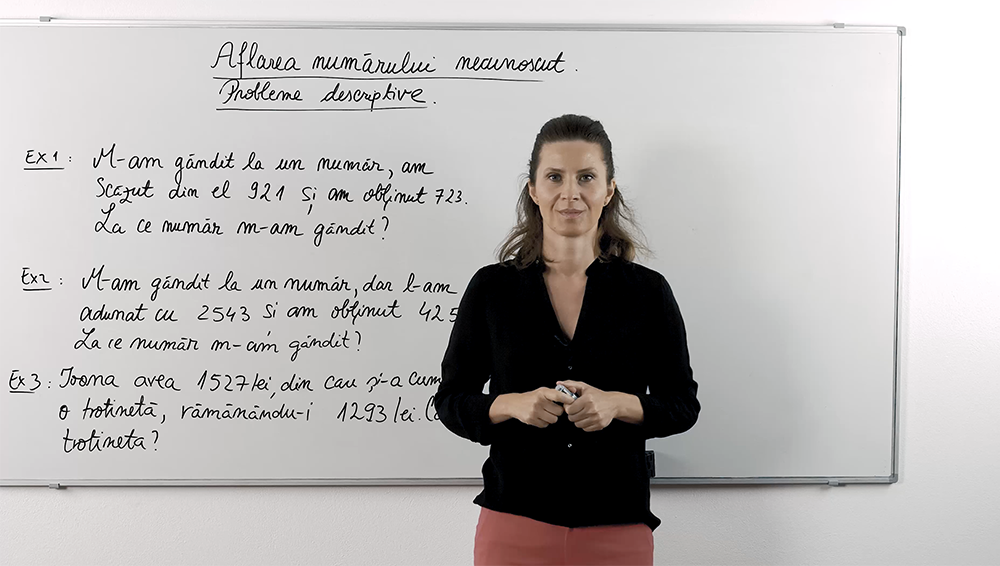 Aflarea numărului necunoscut.
Probleme descriptive.
Ex 1: M-am gândit la un număr, am
scăzut din el 921 și am obținut 723.
La ce număr m-am gândit?
Ex2: M-am gândit la un număr, dar l-am
adunat cu 2543 și am obținut 425
La ce număr m-am gândit?
Ex 3: Ioana avea 1527 lei, din care și-a cum
o trotinetă, rămânându-i 1293 lei.
trotineta?